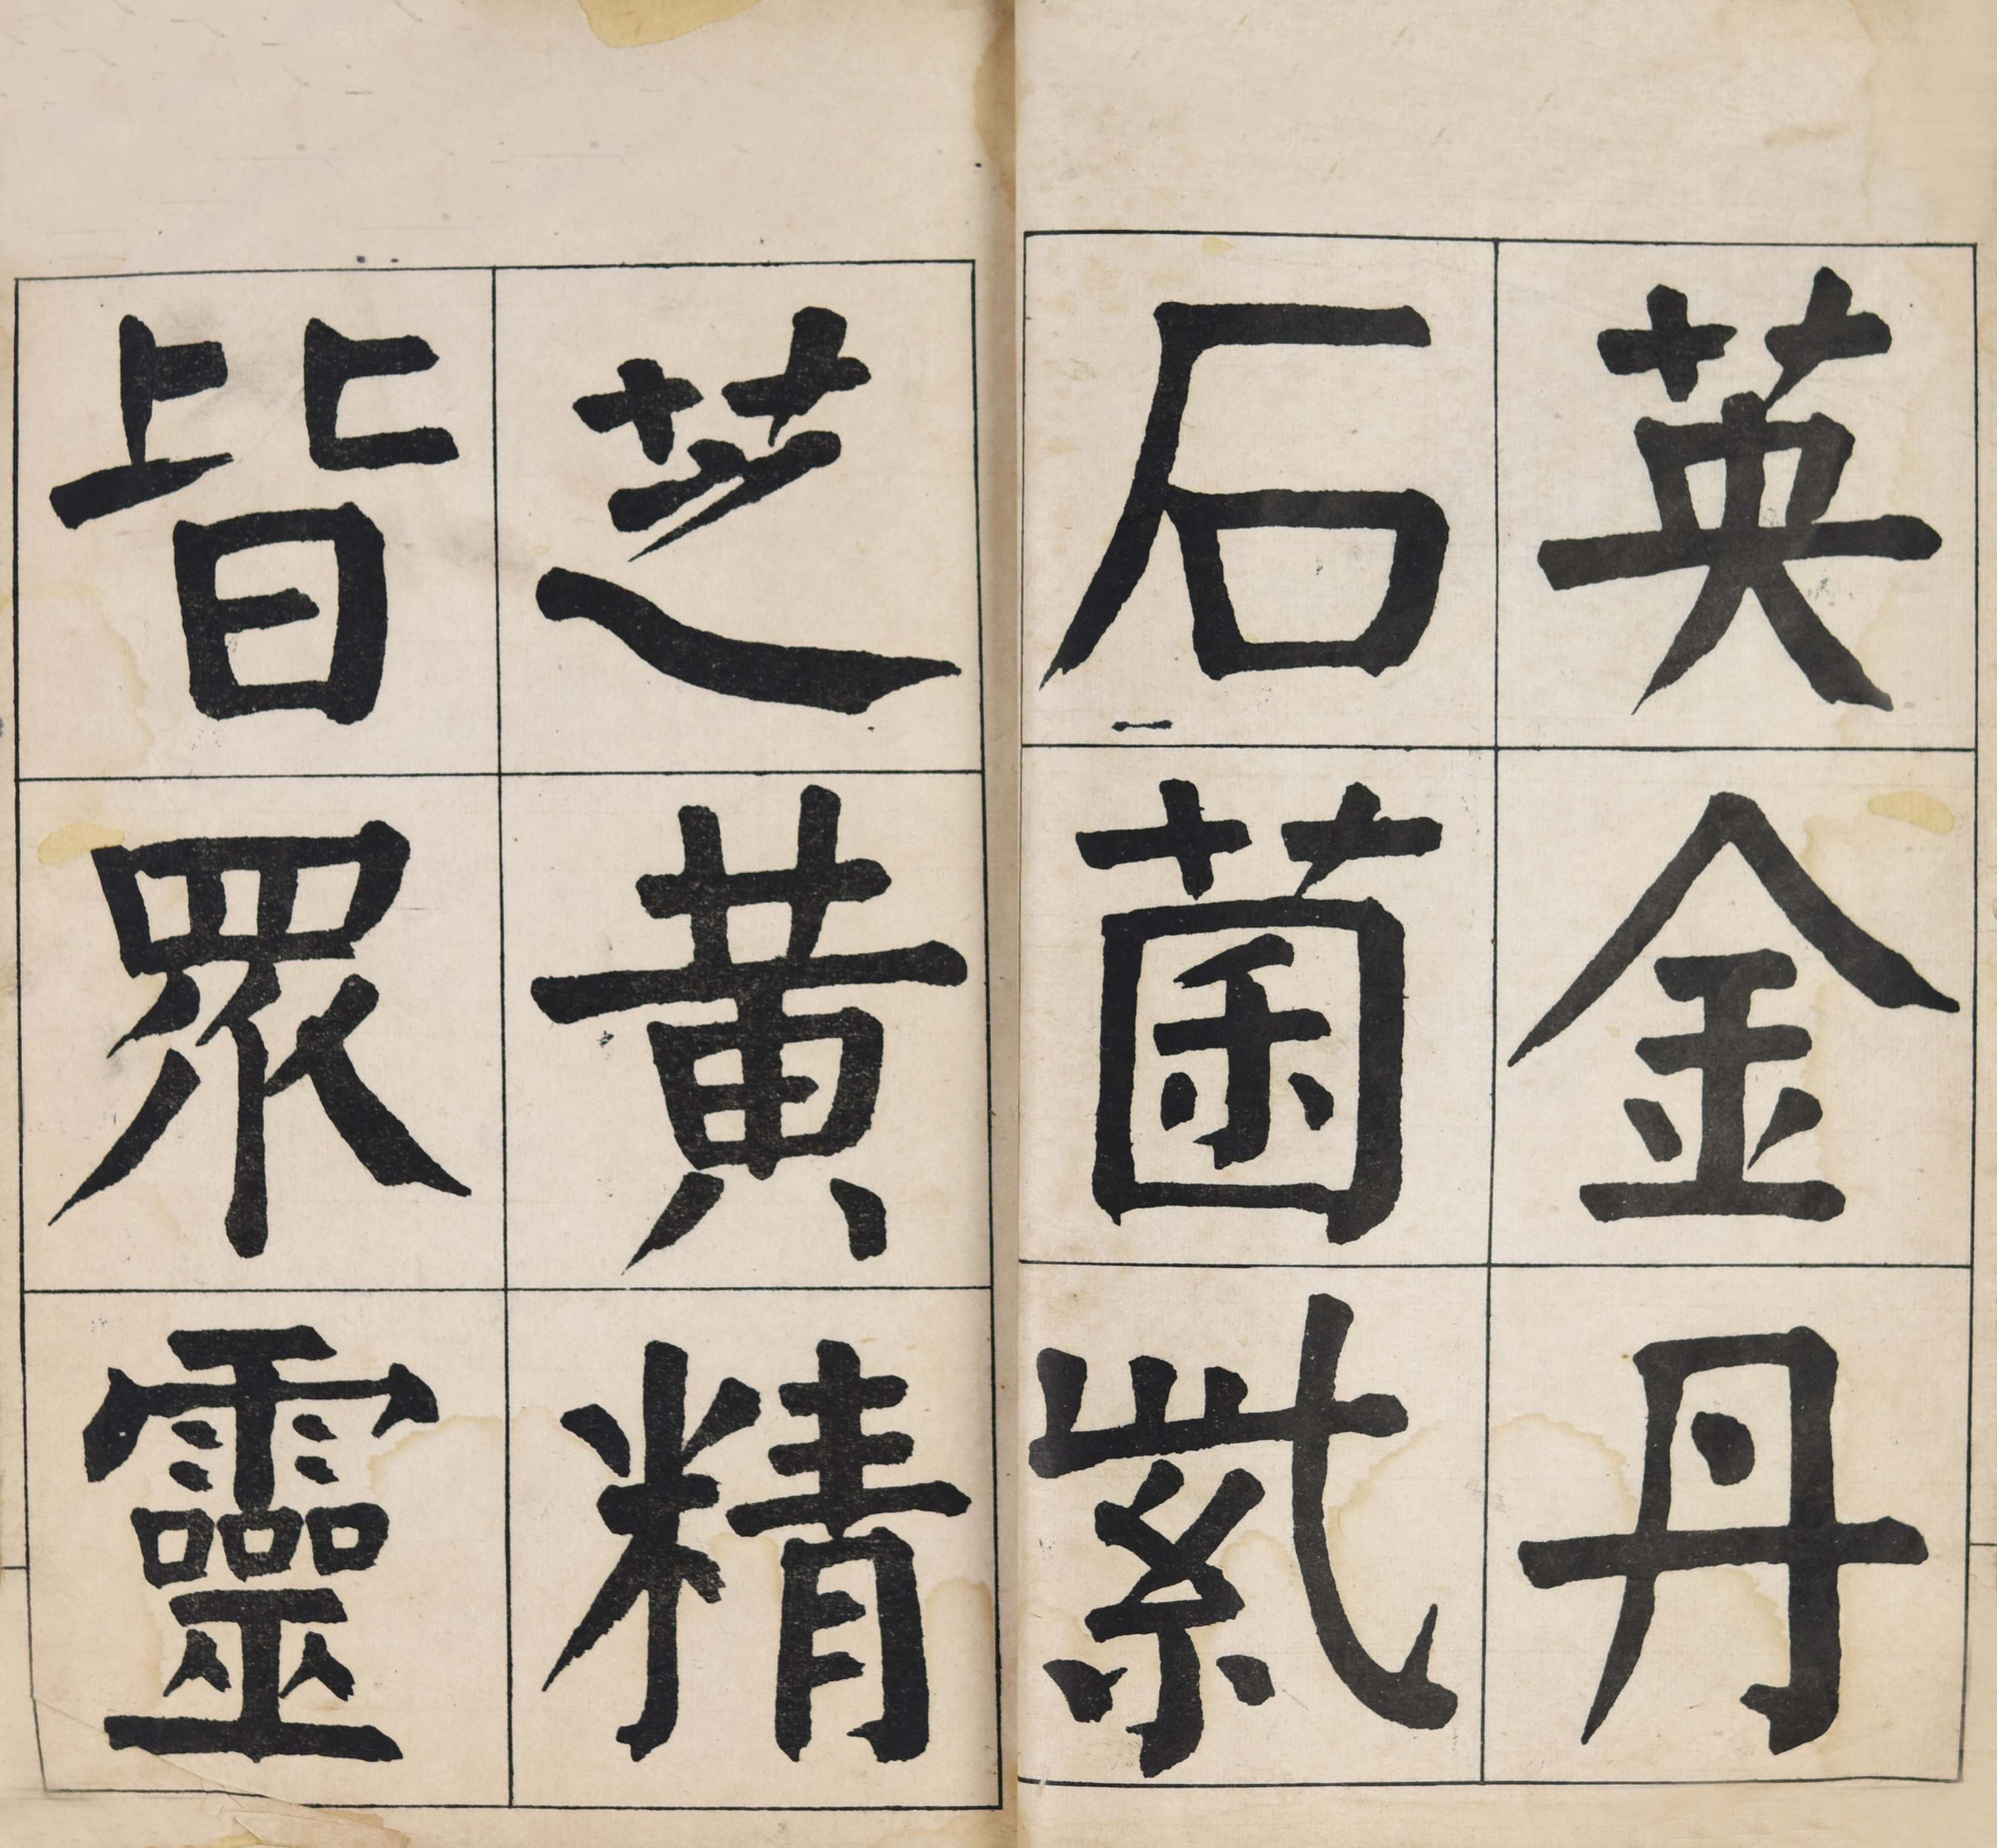 英金丹
石菌紫
芝黃精
皆眾靈